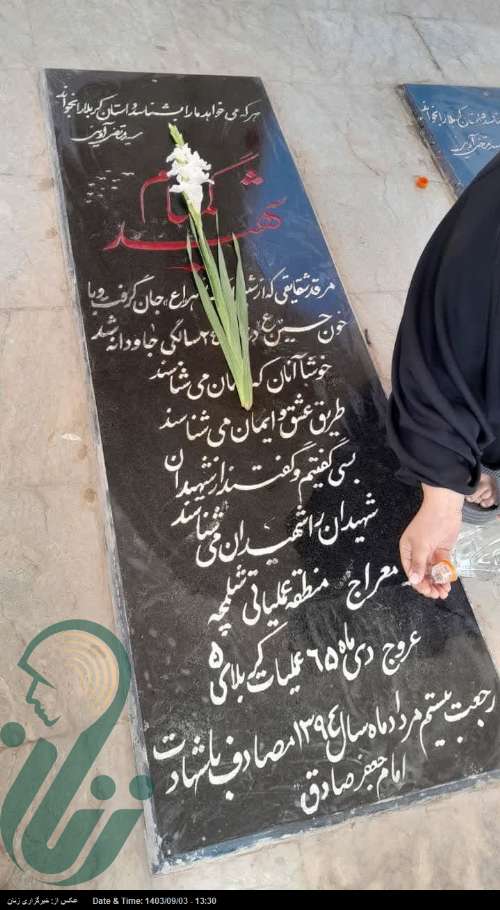 هر که می خواهد ما را بشناسد داستان کربلا را بخواند
سید مرتضی آوینی
شهید
گمنام
مرقد شقایقی که از
زهرا(ع)، جان گرفت و با
خون حسین(ع) در ۲۴ سالگی جاودانه شد
خوشا آنان که جان می شناسند
طریق عشق و ایمان می شناسند
بسی گفتیم و گفتند از شهیدان
شهیدان را شهیدان می شناسند
معراج منطقه عملیاتی شلمچه
عروج دی ماه ۶۵ عملیات کربلای ۵
رجعت بیستم مرداد ماه سال ۱۳۹۴ مصادف با شهادت
امام جعفر صادق
زنان
عکس از: خبرگزاری زنان Date & Time: 1403/09/03 - 13:30